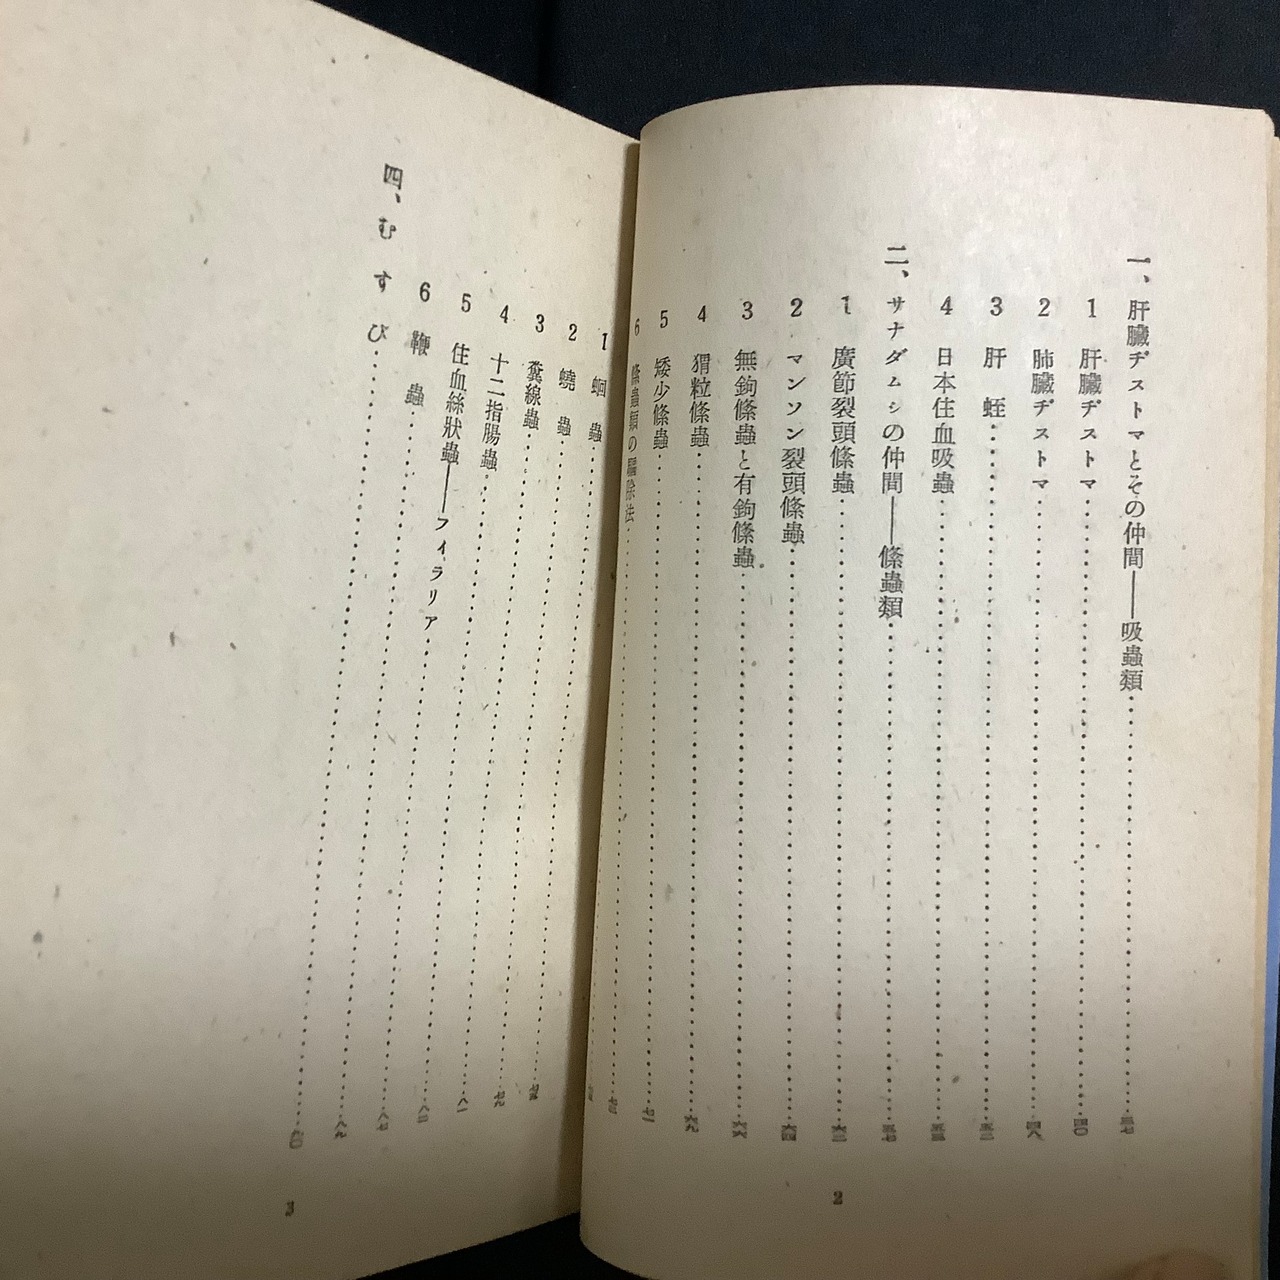 一、肝臟ヂストマとその仲間――吸蟲類……三七
1 肝臟ヂストマ……四〇
2 肺臟ヂストマ……四八
3 肝蛭……
4 日本住血吸蟲……
二、サナダムシの仲間――條蟲類……
1 廣節裂頭條蟲……
2 マンソン裂頭條蟲……六四
3 無鉤條蟲と有鉤條蟲……六六
4 猬粒條蟲……六九
5 矮少條蟲……七一
6 條蟲類の驅除法……
2
1 蛔蟲……
2 蟯蟲……
3 糞線蟲……
4 十二指腸蟲……
5 住血絲狀蟲――フィラリア……
6 鞭蟲……
四、むすび……
3